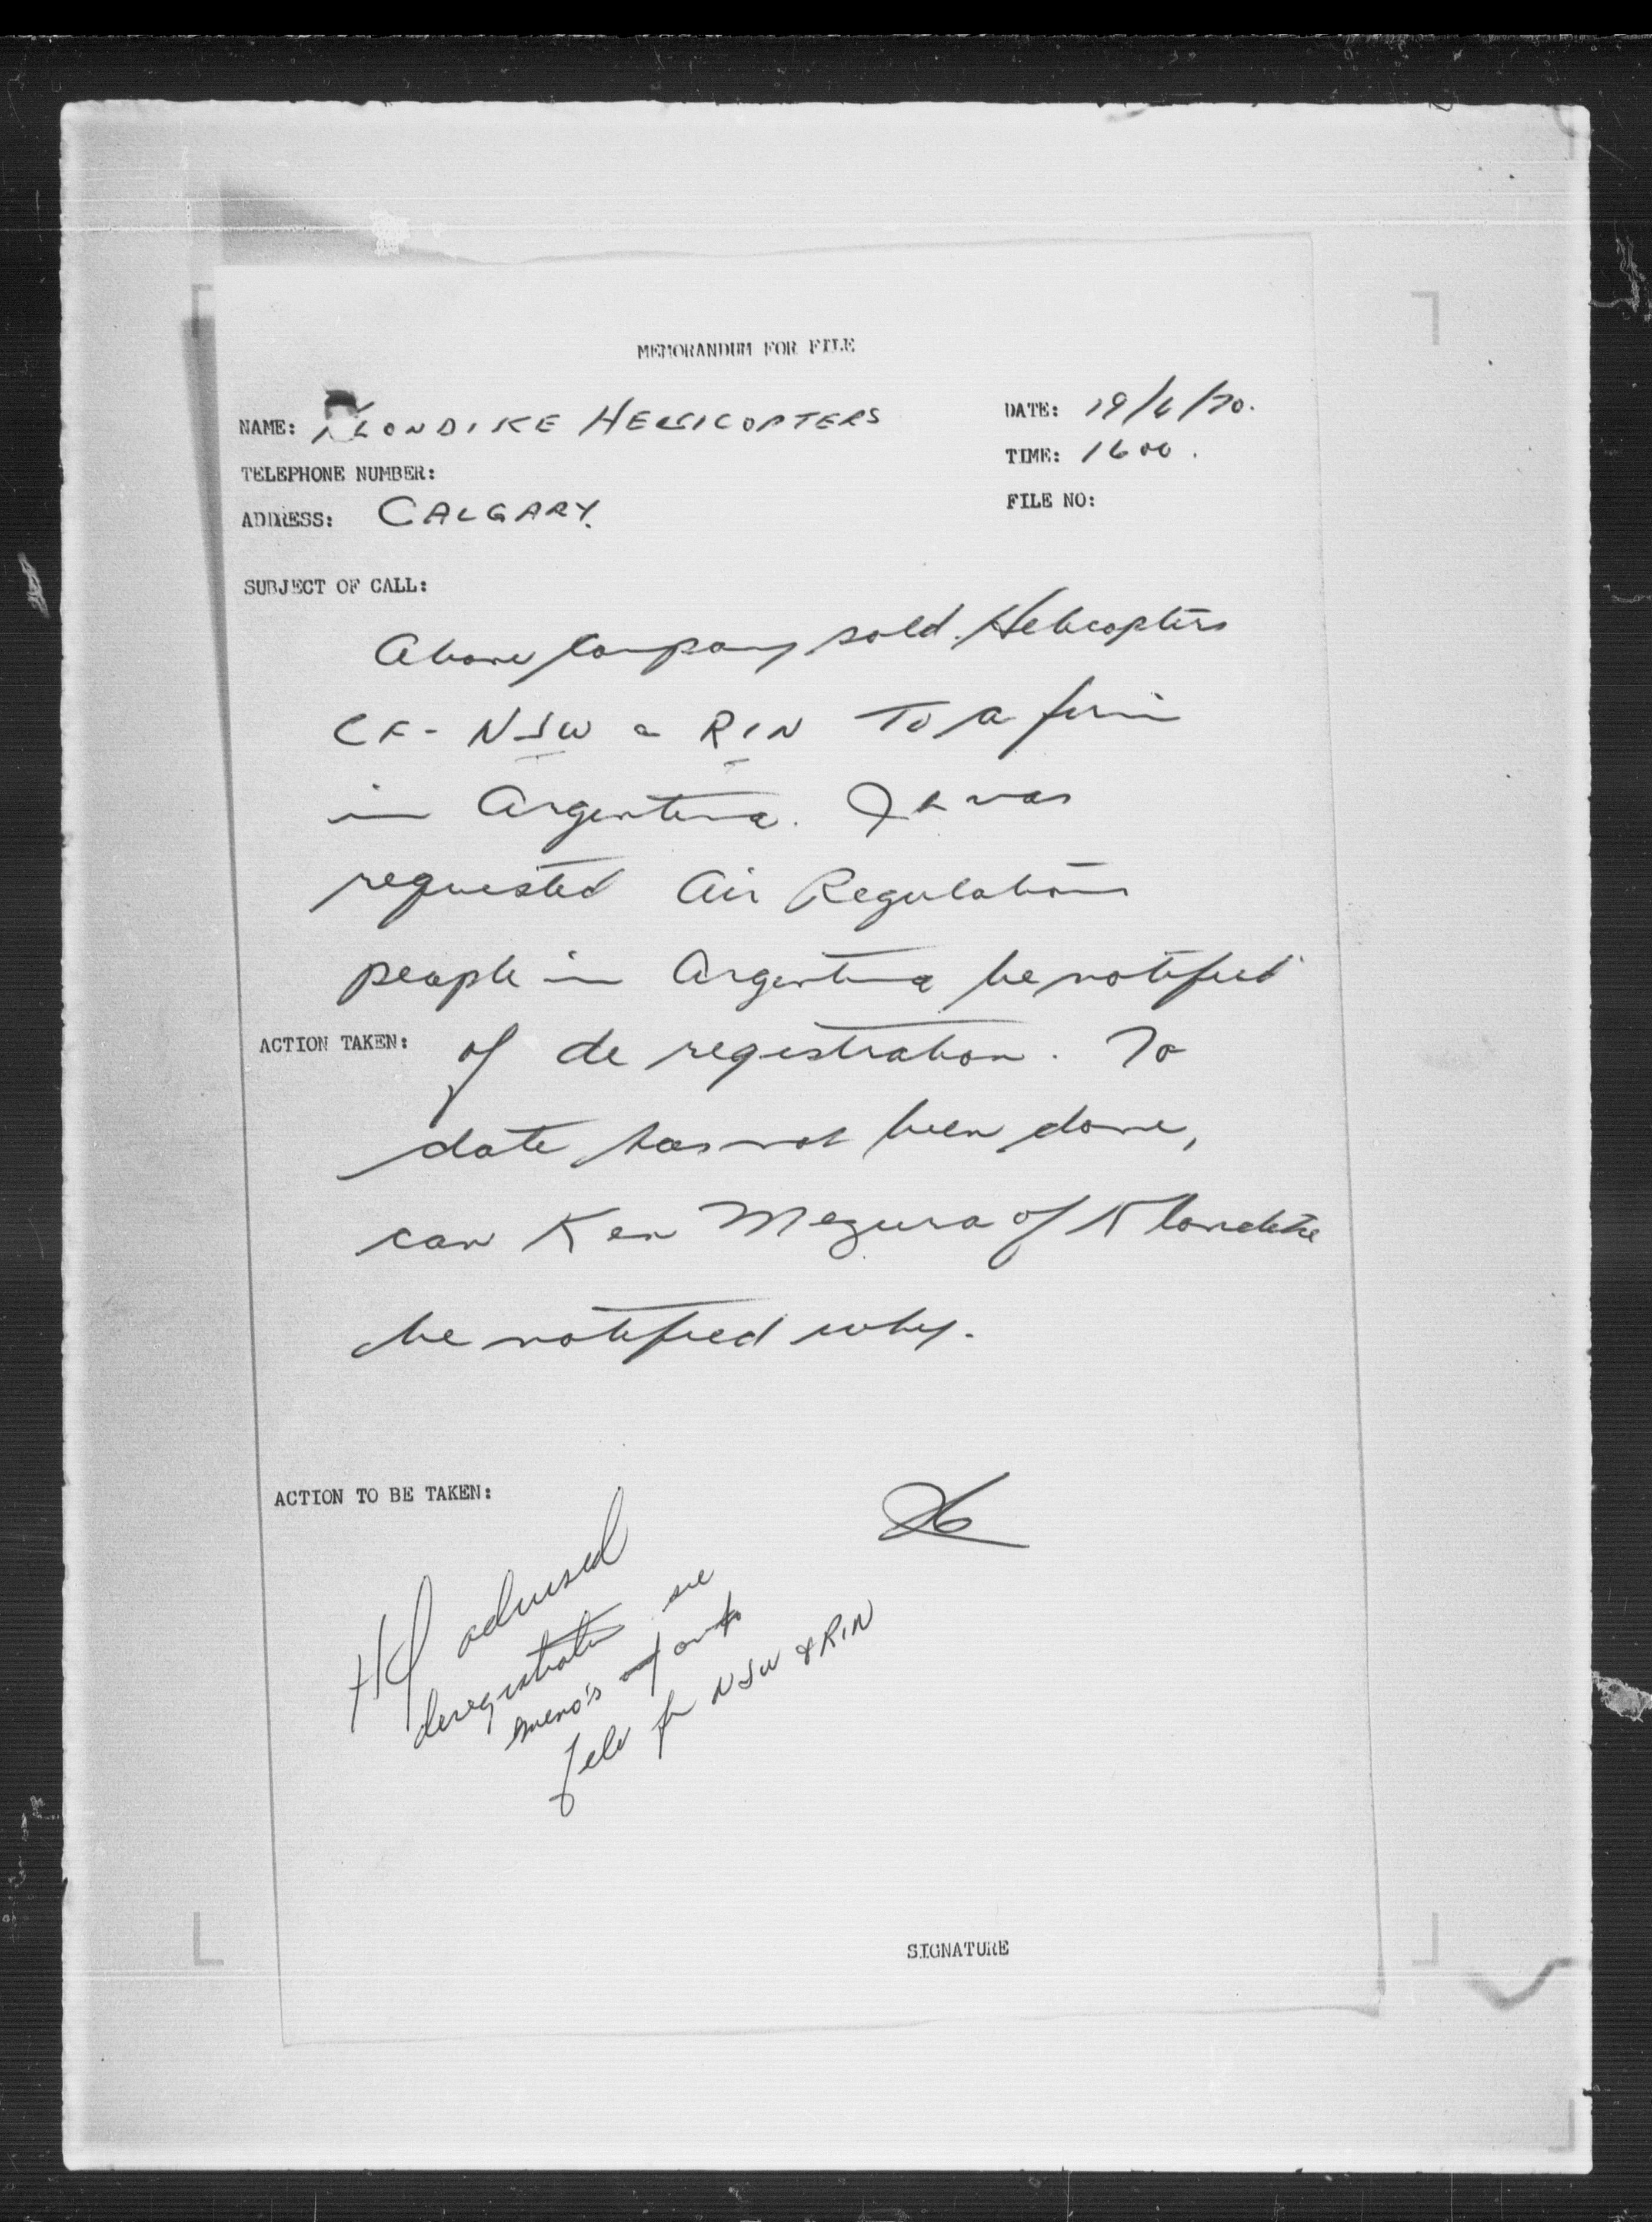 MEMORANDUM FOR FILE
NAME: KLONDIKE HELICOPTERS
DATE: 19/6/70.
TELEPHONE NUMBER:
TIME: 1600.
ADDRESS: CALGARY.
FILE NO:
SUBJECT OF CALL:
Above Company sold Helicopters
CF- NSW & RIN To a firm
in Argentina. It was
requested Air Regulations
people in Argentina be notified
ACTION TAKEN: of de registration. To
date has not been done,
can Ken Mezura of Klondike
be notified why.
ACTION TO BE TAKEN:
HQ advised
deregistration see
memo's on
file for NSW & RIN
SIGNATURE